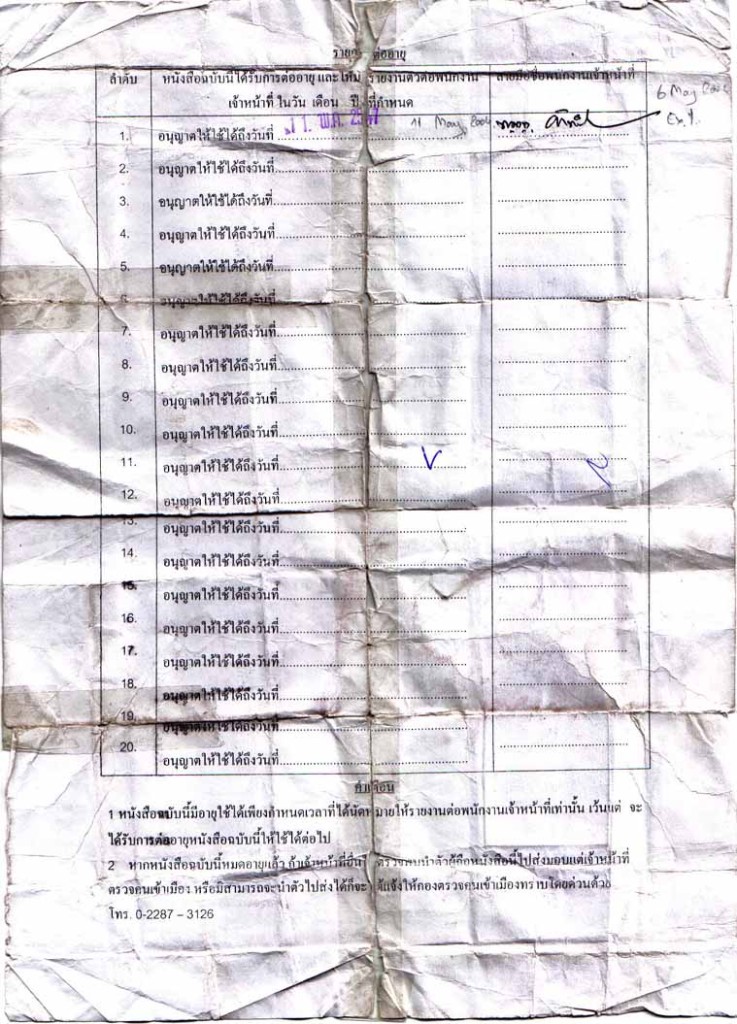 ต่ออายุ
ลำดับ หนังสือฉบับนี้ได้รับการต่ออายุ และให้มา รายงานตัวต่อพนักงาน ลายมือชื่อพนักงานเจ้าหน้าที่
เจ้าหน้าที่ ในวัน เดือน ปี ที่กำหนด
6 May
Ext.
1. อนุญาตให้ใช้ได้ถึงวันที่ 11 พ.ค. 11 May
2. อนุญาตให้ใช้ได้ถึงวันที่
3. อนุญาตให้ใช้ได้ถึงวันที่
4. อนุญาตให้ใช้ได้ถึงวันที่
5. อนุญาตให้ใช้ได้ถึงวันที่
6. อนุญาตให้ใช้ได้ถึงวันที่
7. อนุญาตให้ใช้ได้ถึงวันที่
8. อนุญาตให้ใช้ได้ถึงวันที่
9. อนุญาตให้ใช้ได้ถึงวันที่
10. อนุญาตให้ใช้ได้ถึงวันที่
11. อนุญาตให้ใช้ได้ถึงวันที่
12. อนุญาตให้ใช้ได้ถึงวันที่
13. อนุญาตให้ใช้ได้ถึงวันที่
14. อนุญาตให้ใช้ได้ถึงวันที่
15. อนุญาตให้ใช้ได้ถึงวันที่
16. อนุญาตให้ใช้ได้ถึงวันที่
17. อนุญาตให้ใช้ได้ถึงวันที่
18. อนุญาตให้ใช้ได้ถึงวันที่
19. อนุญาตให้ใช้ได้ถึงวันที่
20. อนุญาตให้ใช้ได้ถึงวันที่
คำเตือน
1 หนังสือฉบับนี้มีอายุใช้ได้เพียงกำหนดเวลาที่ได้นัดหมายให้รายงานต่อพนักงานเจ้าหน้าที่เท่านั้น เว้นแต่ จะ
ได้รับการต่ออายุหนังสือฉบับนี้ให้ใช้ได้ต่อไป
2 หากหนังสือฉบับนี้หมดอายุแล้ว ถ้าเจ้าหน้าที่อื่น ตรวจพบนำตัวผู้ถือหนังสือนี้ไปส่งมอบแต่เจ้าหน้าที่
ตรวจคนเข้าเมือง หรือมิสามารถจะนำตัวไปส่งได้ก็จะ แจ้งให้กองตรวจคนเข้าเมืองทราบโดยด่วนด้วย
โทร. 0-2287 – 3126